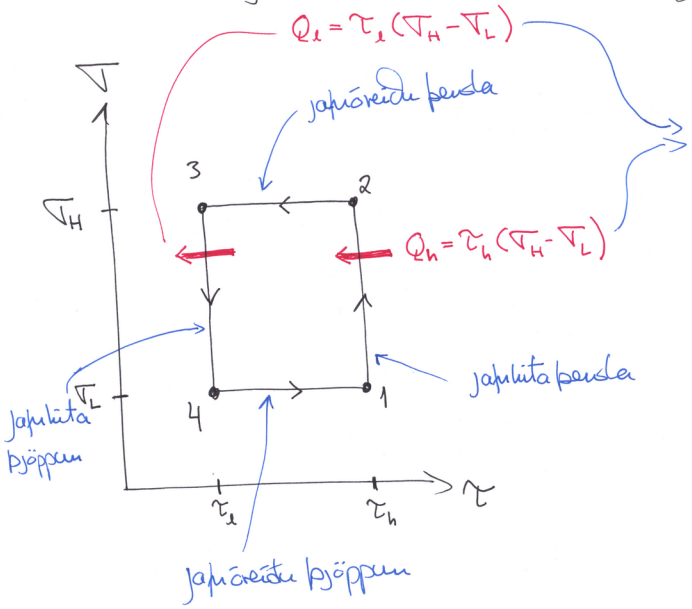 Q_l = τ_l (σ_H - σ_L)
σ
jafnóreiðu þensla
3
2
σ_H
Q_h = τ_h (σ_H - σ_L)
jafnhita þensla
σ_L
4
1
jafnhita
þjöppun
τ
τ_l
τ_h
jafnóreiðu þjöppun